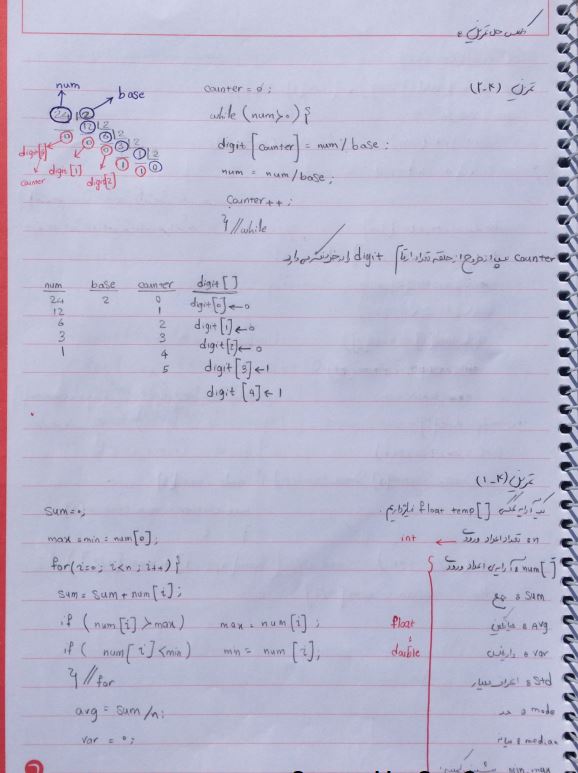 کلاس حل تمرین :
تمرین (۲-۴)
num
base
24 2
12 2
6 2
3 2
1 2
0
0 0 0 1 1
digit[0]
counter
digit[1]
digit[2]
counter = 0;
while (num>0) {
digit [counter] = num % base;
num = num/base;
Counter++;
} //while
counter پس از خروج از حلقه تعداد ارقام digit را در خود نگه می دارد
num base counter digit[ ]
24 2 0 digit[0]←0
12 1
6 2 digit[1]←0
3 3 digit[2]←0
1 4
5 digit[3]←1
digit [4]←1
تمرین (۱-۴)
یک آرایه کمکی float temp[ ] نیاز داریم.
sum=0;
max=min=num[0];
for(i=0; i<n; i++) {
sum=sum+num[i];
if (num[i]>max) max=num[i];
if (num[i]<min) min=num[i];
} //for
avg=sum/n;
var=0;
n : تعداد اعداد ورودی ← int
num[ ] : آرایه ی اعداد ورودی
Sum : جمع
Avg : میانگین
float
double
var : واریانس
Std : انحراف معیار
mode : مد
median : میانه
min max